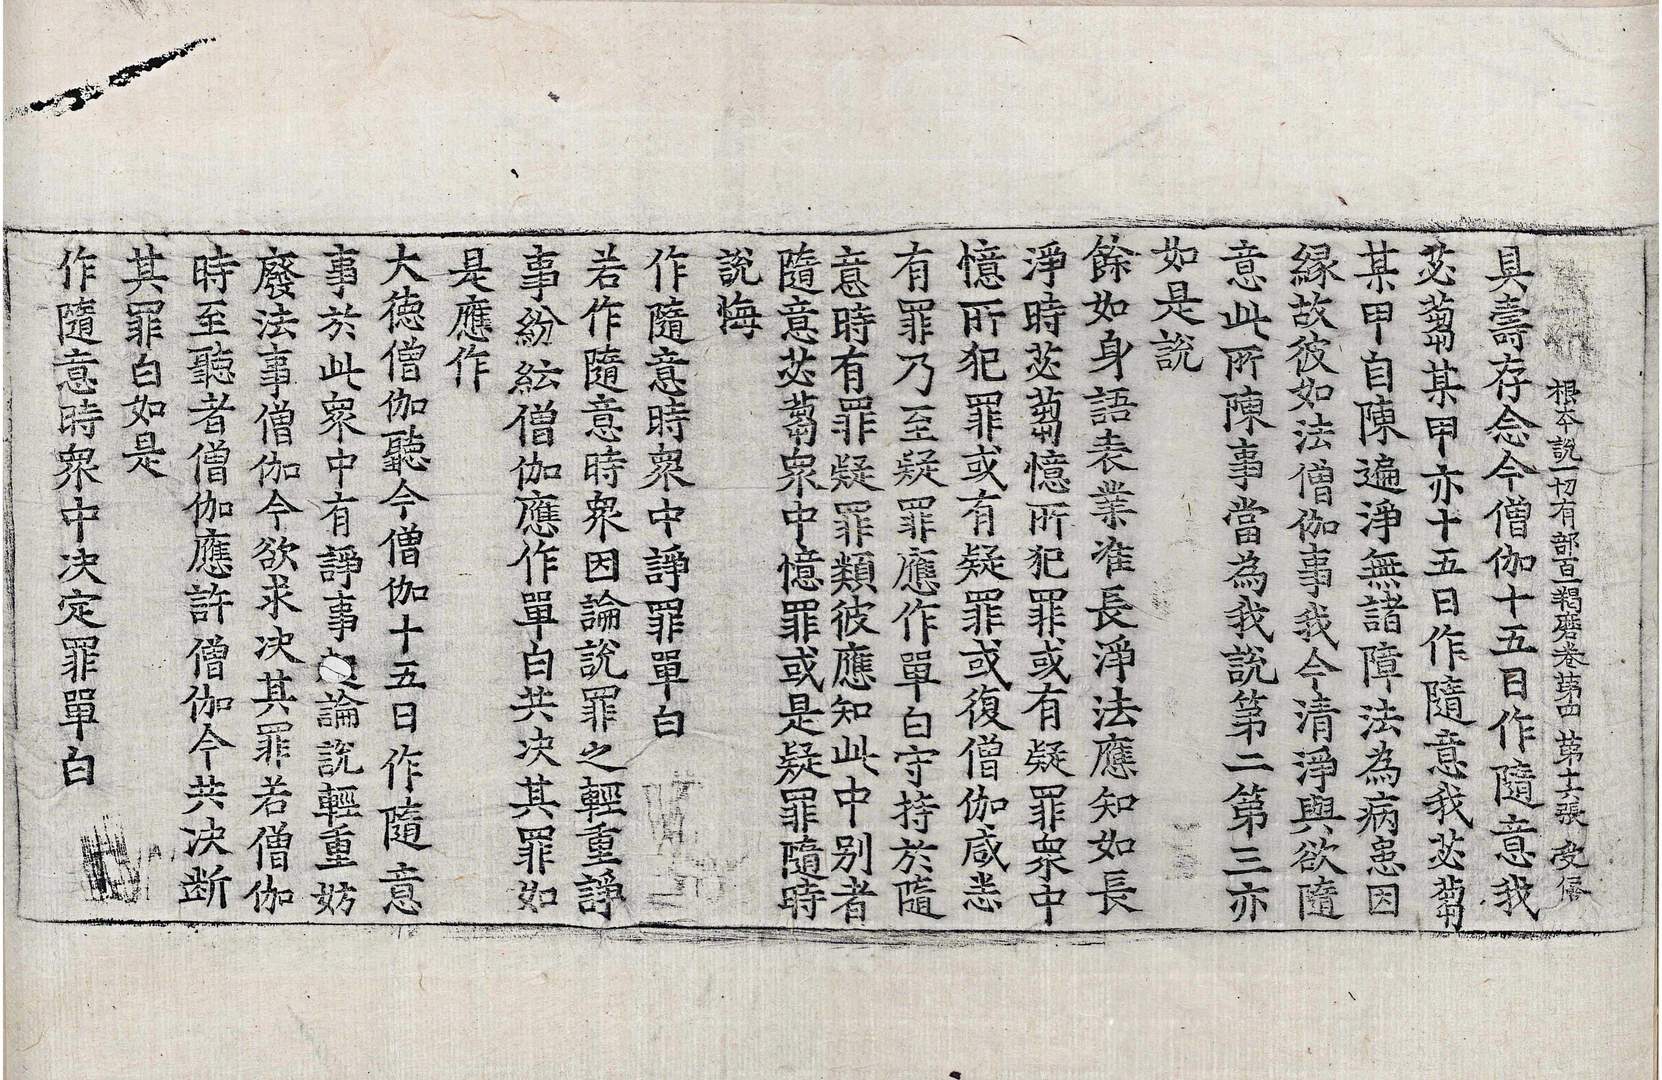 根本說一切有部百一羯磨卷第四 第十六張 受
具壽存念今僧伽十五日作隨意我
苾蒭某甲亦十五日作隨意我苾蒭
某甲自陳遍淨無諸障法為病患因
縁故彼如法僧伽事我今清淨與欲隨
意此所陳事當為我說第二第三亦
如是說
餘如身語表業准長淨法應知如長
淨時苾蒭憶所犯罪或有疑罪衆中
憶所犯罪或有疑罪或復僧伽咸悉
有罪乃至疑罪應作單白守持於隨
意時有罪疑罪類彼應知此中别者
隨意苾蒭衆中憶罪或是疑罪隨時
說悔
作隨意時衆中諍罪單白
若作隨意時衆因論說罪之輕重諍
事紛紜僧伽應作單白共决其罪如
是應作
大德僧伽聽今僧伽十五日作隨意
事於此衆中有諍事論說輕重妨
廢法事僧伽今欲求决其罪若僧伽
時至聽者僧伽應許僧伽今共决断
其罪白如是
作隨意時衆中决定罪單白